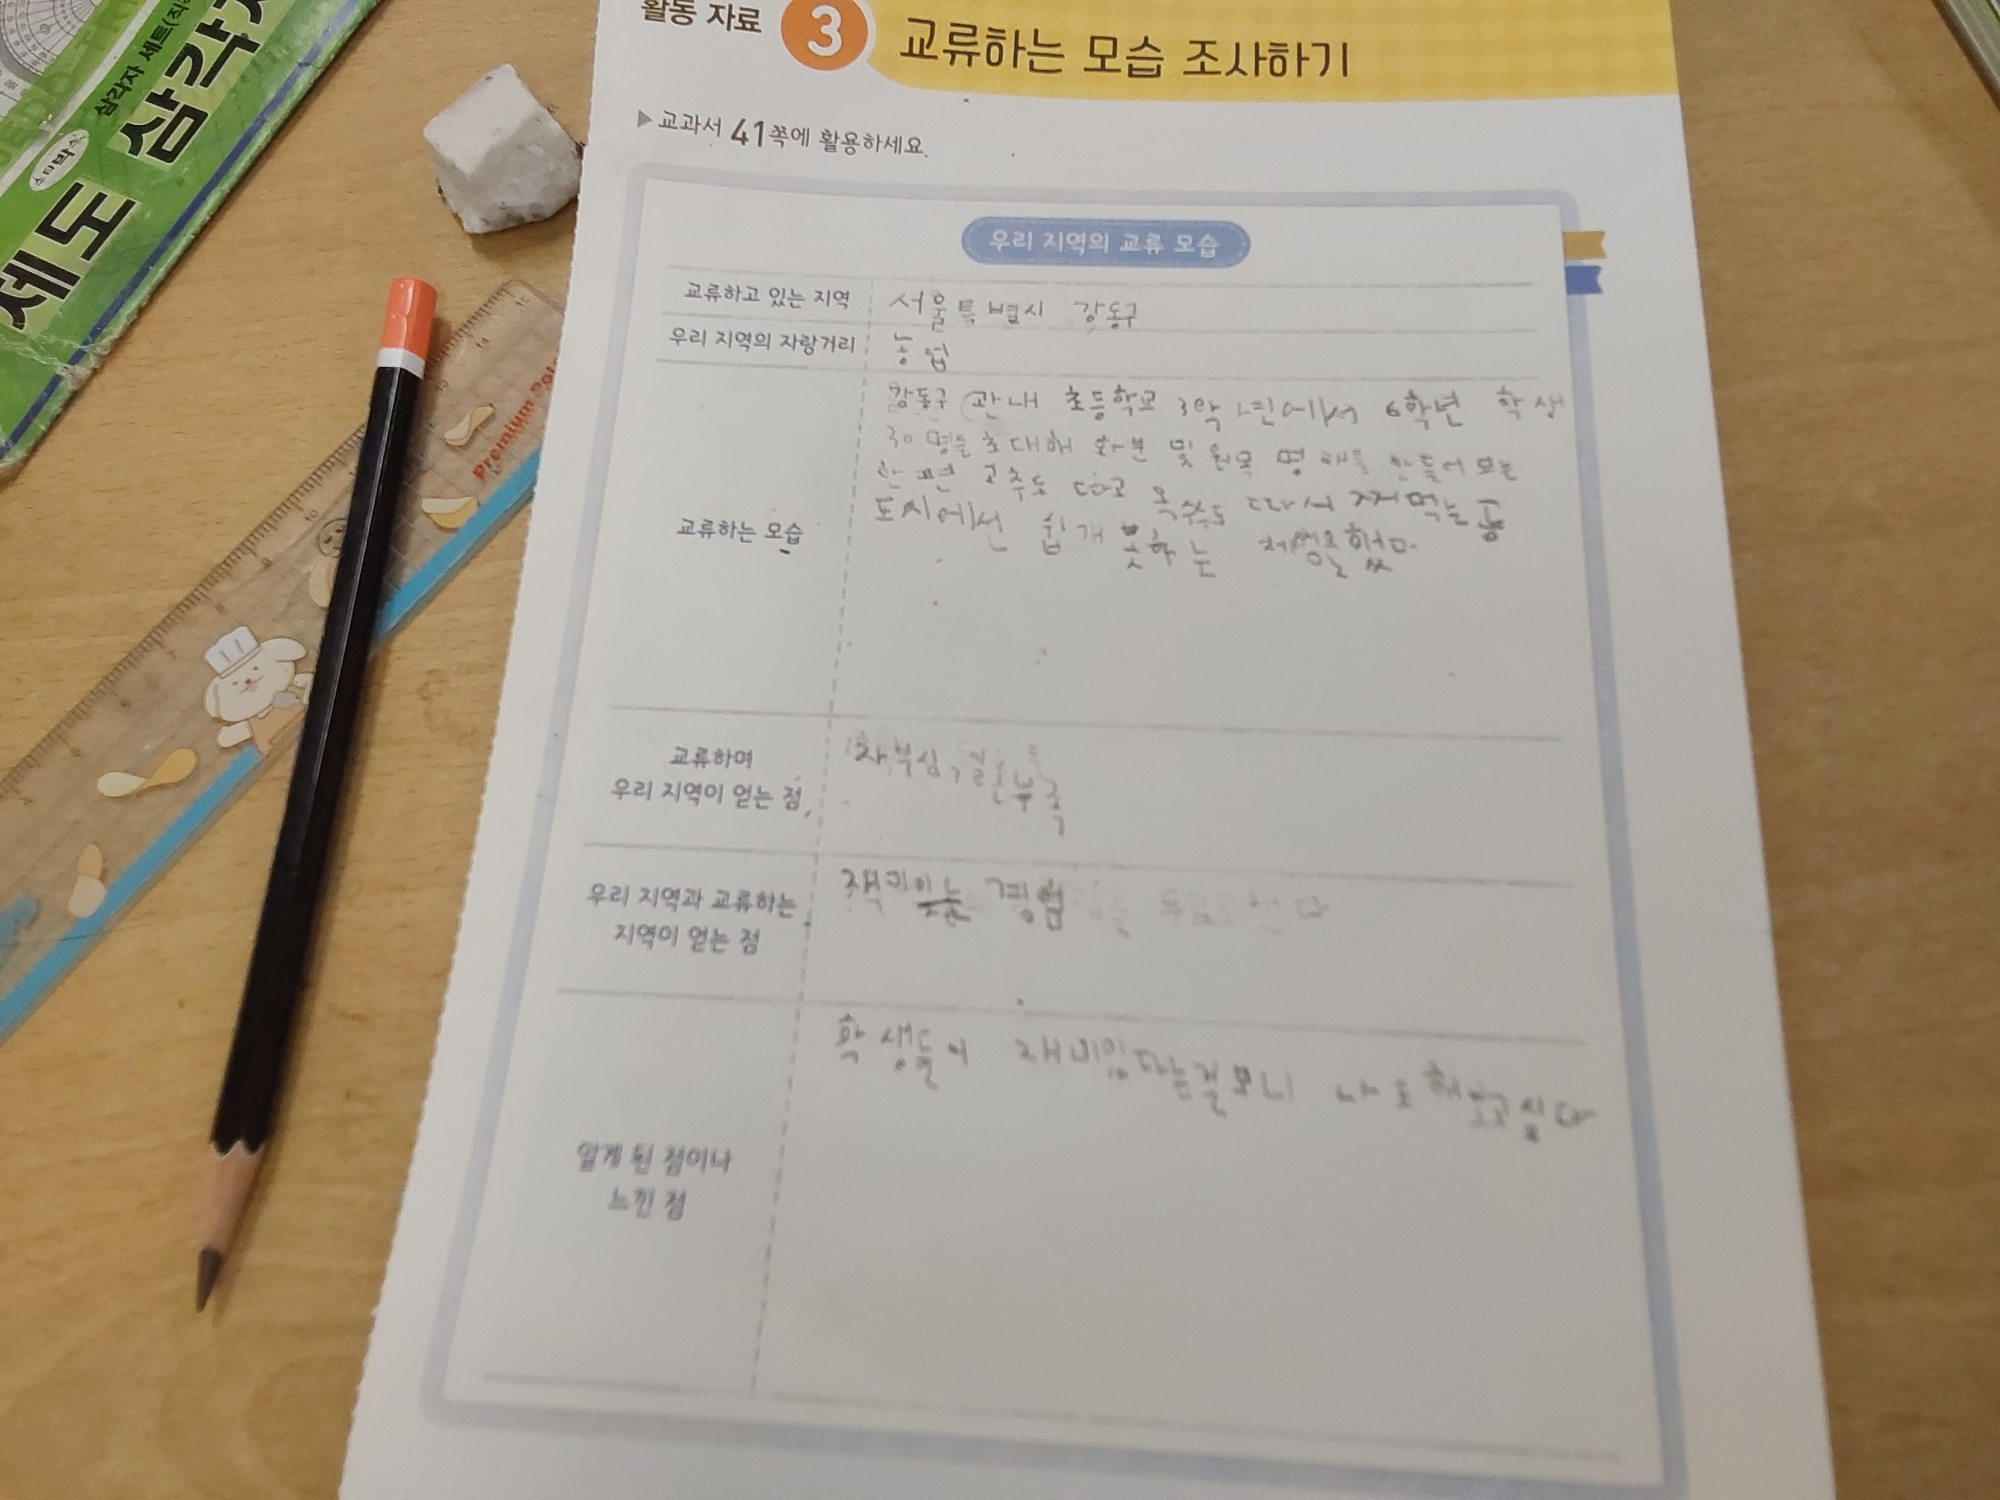 활동 자료 3 교류하는 모습 조사하기
▶교과서 41쪽에 활용하세요.
우리 지역의 교류 모습
교류하고 있는 지역 서울특별시 강동구
우리 지역의 자랑거리 농업
강동구 관내 초등학교 3학년에서 6학년 학생
30명을 초대해 화분 및 원목 명패를 만들어 보는
한편 고추도 따고 옥수수도 따서 쪄먹는 등
교류하는 모습 도시에선 쉽게 못하는 체험을 했다.
교류하며
우리 지역이 얻는 점 자부심,
우리 지역과 교류하는 재미있는 경험
지역이 얻는 점
학생들이 재미있다는걸 보니 나도 해보고싶다
알게 된 점이나
느낀 점
세도
삼각자
삼각자 세트
Premium